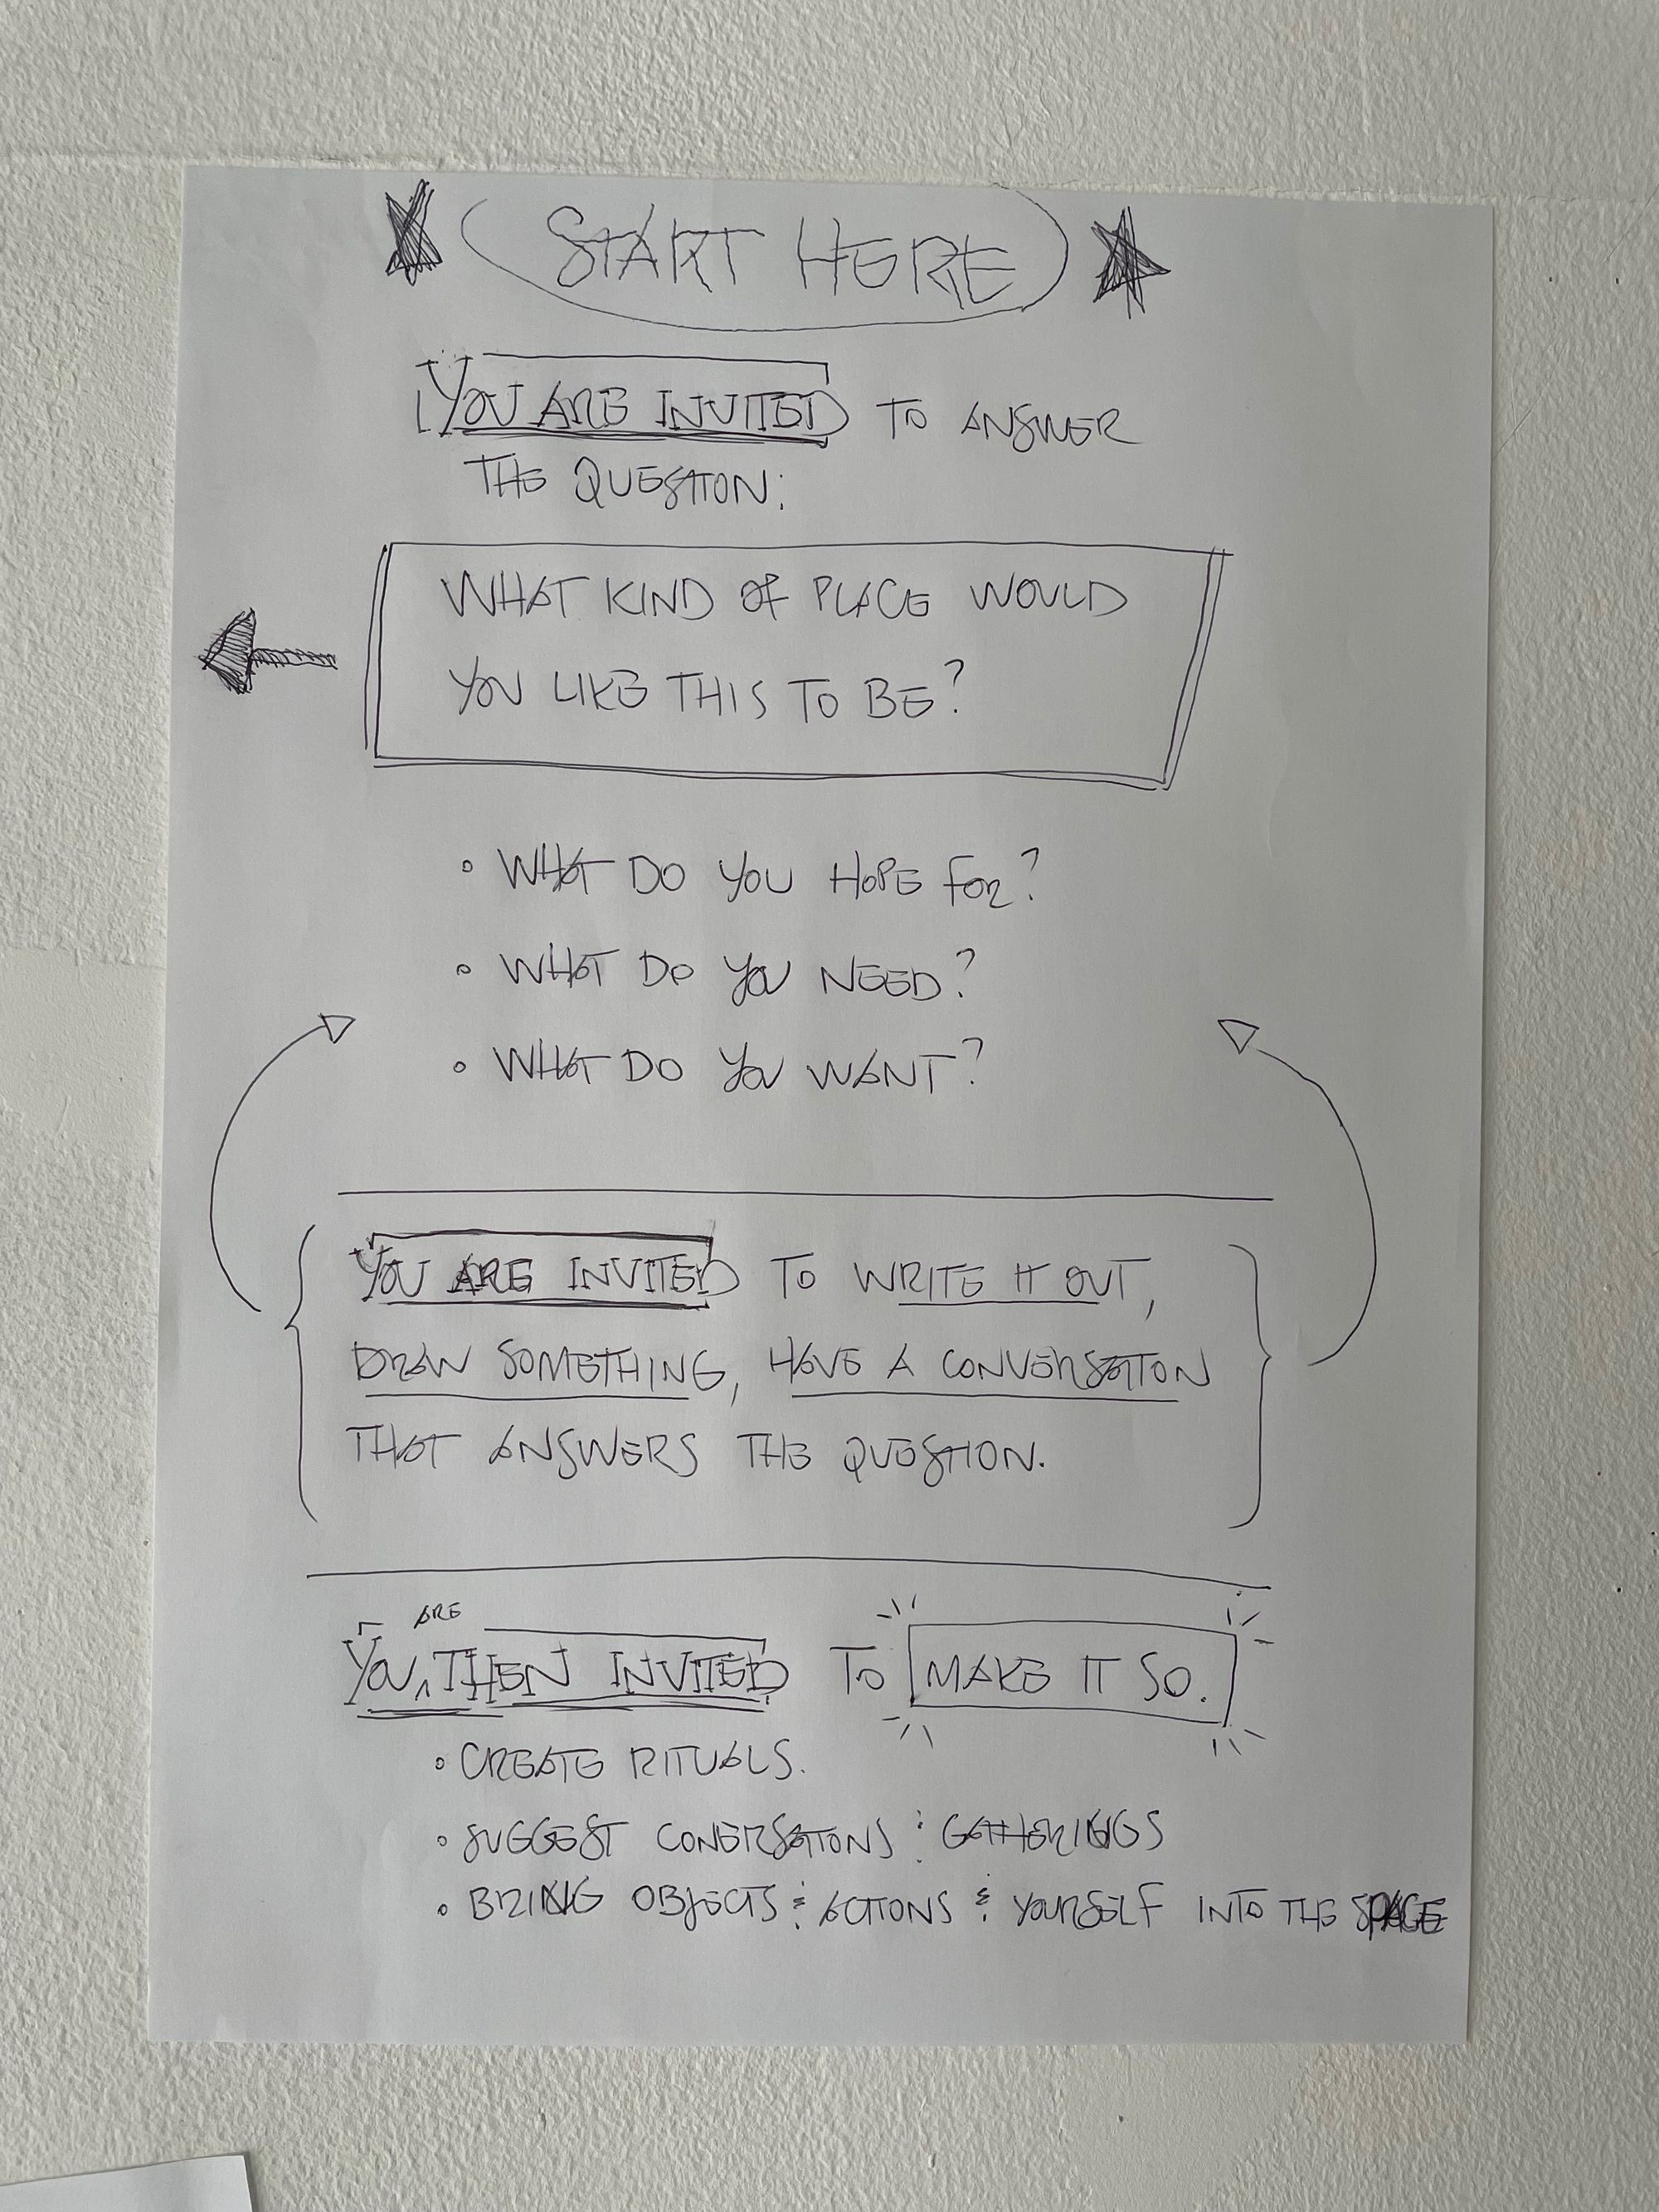 START HERE
YOU ARE INVITED TO ANSWER
THE QUESTION:
WHAT KIND OF PLACE WOULD
YOU LIKE THIS TO BE?
• WHAT DO YOU HOPE FOR?
• WHAT DO YOU NEED?
• WHAT DO YOU WANT?
YOU ARE INVITED TO WRITE IT OUT,
DRAW SOMETHING, HAVE A CONVERSATION
THAT ANSWERS THE QUESTION.
YOU ARE THEN INVITED TO MAKE IT SO.
• CREATE RITUALS.
• SUGGEST CONERSATIONS & GATHERINGS
• BRING OBJECTS & ACTIONS & YOURSELF INTO THE SPACE